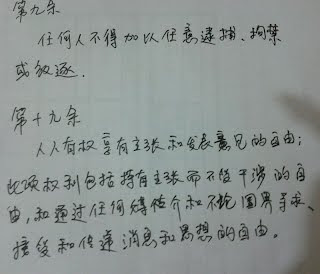 第九条
任何人不得加以任意逮捕、拘禁
或放逐.
第十九条
人人有权享有主张和发表意见的自由;
此项权利包括持有主张而不受干涉的自
由,和通过任何媒介和不论国界寻求、
接受和传递消息和思想的自由。